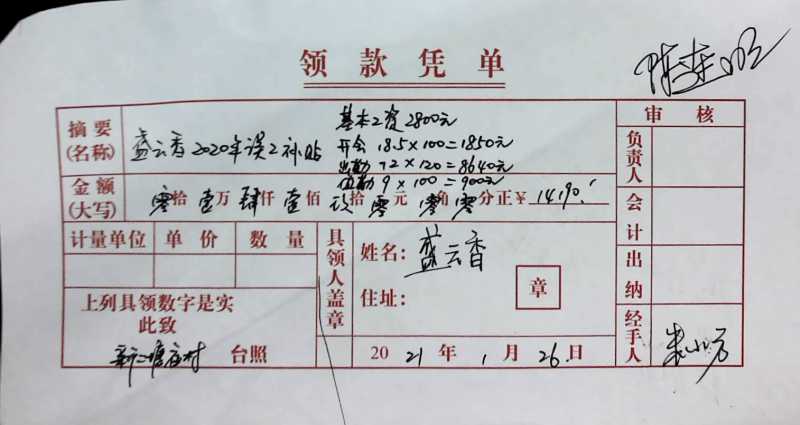 领款凭单
摘要
(名称)
盛云香2020年误工补贴
基本工资2800元
开会 18.5×100=1850元
出勤 72×120=8640元
值勤 9×100=900元
金额
(大写)
零拾壹万肆仟壹佰玖拾零元零角零分正¥14190.
计量单位 单价 数量
上列具领数字是实
此致
台照
具领人盖章
姓名:盛云香
住址:
章
2021年1月26日
审核
负责人
会计
出纳
经手人